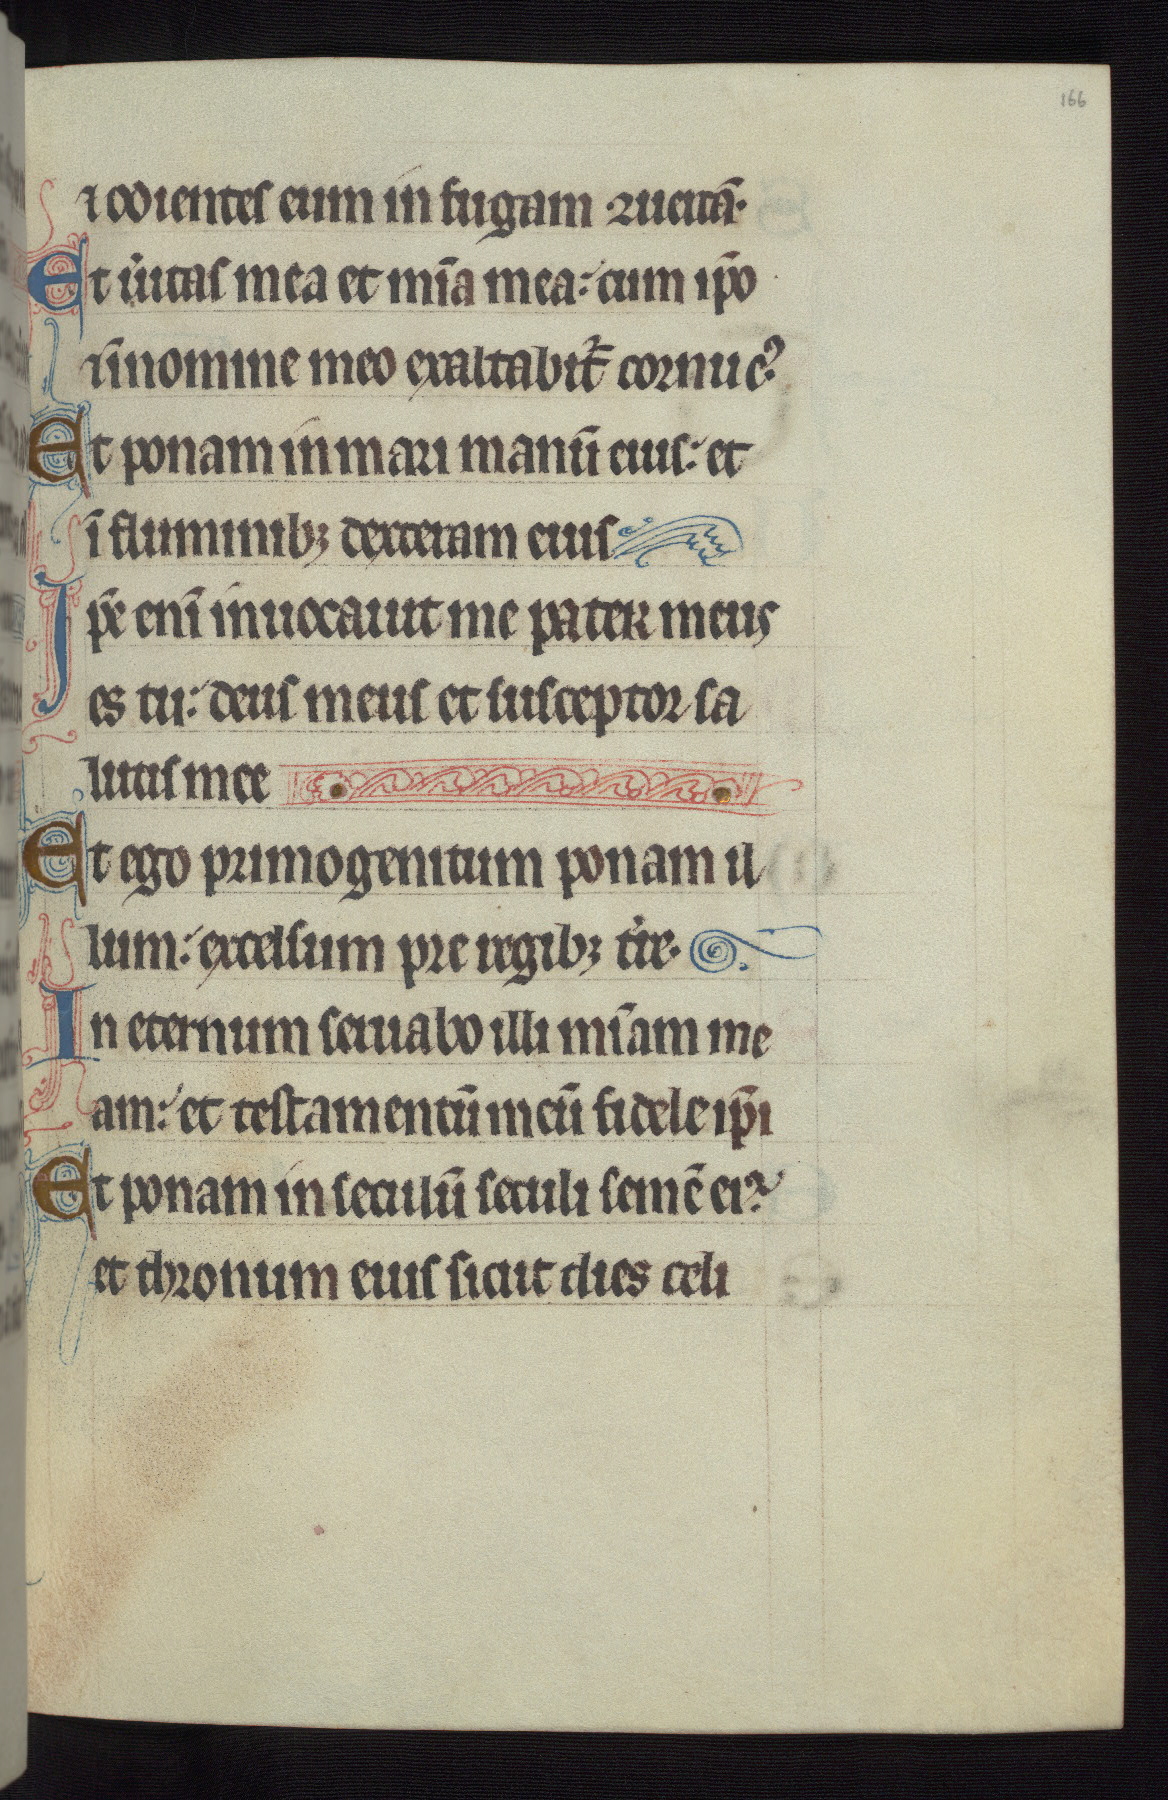 166
⁊ odientes eum in fugam ꝯuertā·
Et u̾itas mea et mīa mea: cum ip̄o
⁊ ī nomine meo exaltabit᷑ cornu eꝰ
Et ponam in mari manū eius: et
ī fluminibꝫ dexteram eius
Ip̄e enī inuocauit me pater meus
es tu: deus meus et susceptor sa
lutis mee
Et ego primogenitum ponam il
lum: excelsum pre regibꝫ t̾re·
In eternum seruabo illi mīam me
am: et testamentū meū fidele ip̄i
Et ponam in seculū seculi semē eiꝰ
et thronum eius sicut dies celi